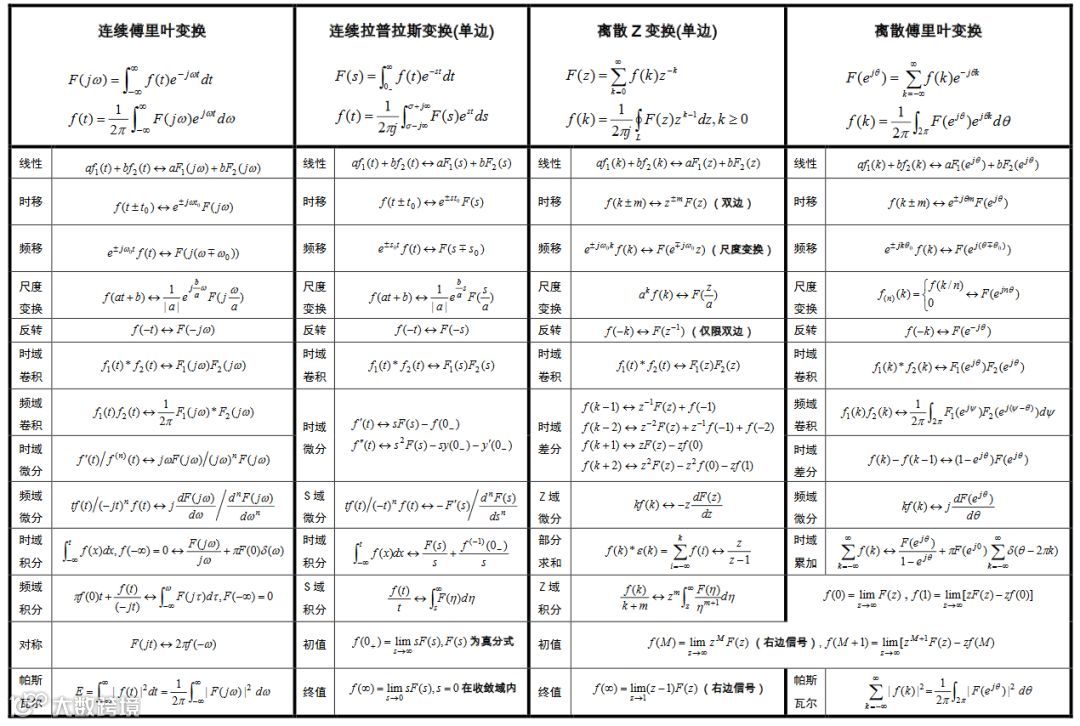 连续傅里叶变换
F(jω)=∫_{-∞}^{∞} f(t)e^{-jωt}dt
f(t)=\frac{1}{2π}∫_{-∞}^{∞} F(jω)e^{jωt}dω
连续拉普拉斯变换(单边)
F(s)=∫_{0_-}^{∞} f(t)e^{-st}dt
f(t)=\frac{1}{2πj}∫_{σ-j∞}^{σ+j∞} F(s)e^{st}ds
离散 Z 变换(单边)
F(z)=∑_{k=0}^{∞} f(k)z^{-k}
f(k)=\frac{1}{2πj}∮_L F(z)z^{k-1}dz, k≥0
离散傅里叶变换
F(e^{jθ})=∑_{k=-∞}^{∞} f(k)e^{-jθk}
f(k)=\frac{1}{2π}∫_{2π} F(e^{jθ})e^{jθk}dθ
线性 af_1(t)+bf_2(t)↔aF_1(jω)+bF_2(jω) 线性 af_1(t)+bf_2(t)↔aF_1(s)+bF_2(s) 线性 af_1(k)+bf_2(k)↔aF_1(z)+bF_2(z) 线性 af_1(k)+bf_2(k)↔aF_1(e^{jθ})+bF_2(e^{jθ})
时移 f(t±t_0)↔e^{±jωt_0}F(jω) 时移 f(t±t_0)↔e^{±st_0}F(s) 时移 f(k±m)↔z^{±m}F(z)(双边) 时移 f(k±m)↔e^{±jθm}F(e^{jθ})
频移 e^{±jω_0t}f(t)↔F(j(ω∓ω_0)) 频移 e^{±s_0t}f(t)↔F(s∓s_0) 频移 e^{±jω_0k}f(k)↔F(e^{∓jω_0}z)(尺度变换) 频移 e^{±jkθ_0}f(k)↔F(e^{j(θ∓θ_0)})
尺度变换 f(at+b)↔\frac{1}{|a|}e^{j\frac{b}{a}ω}F(j\frac{ω}{a}) 尺度变换 f(at+b)↔\frac{1}{|a|}e^{\frac{b}{a}s}F(\frac{s}{a}) 尺度变换 a^kf(k)↔F(\frac{z}{a}) 尺度变换 f_{(n)}(k)={f(k/n) 0 ↔F(e^{jnθ})
反转 f(-t)↔F(-jω) 反转 f(-t)↔F(-s) 反转 f(-k)↔F(z^{-1})(仅限双边) 反转 f(-k)↔F(e^{-jθ})
时域卷积 f_1(t)*f_2(t)↔F_1(jω)F_2(jω) 时域卷积 f_1(t)*f_2(t)↔F_1(s)F_2(s) 时域卷积 f_1(t)*f_2(t)↔F_1(z)F_2(z) 时域卷积 f_1(k)*f_2(k)↔F_1(e^{jθ})F_2(e^{jθ})
频域卷积 f_1(t)f_2(t)↔\frac{1}{2π}F_1(jω)*F_2(jω)
时域微分 f'(t)↔sF(s)-f(0_-)
f''(t)↔s^2F(s)-sy(0_-)-y'(0_-)
时域差分 f(k-1)↔z^{-1}F(z)+f(-1)
f(k-2)↔z^{-2}F(z)+z^{-1}f(-1)+f(-2)
f(k+1)↔zF(z)-zf(0)
f(k+2)↔z^2F(z)-z^2f(0)-zf(1)
频域卷积 f_1(k)f_2(k)↔\frac{1}{2π}∫_{2π}F_1(e^{jψ})F_2(e^{j(ψ-θ)})dψ
时域微分 f'(t)/f^{(n)}(t)↔jωF(jω)/(jω)^nF(jω) 时域差分 f(k)-f(k-1)↔(1-e^{jθ})F(e^{jθ})
频域微分 tf(t)/(-jt)^nf(t)↔j\frac{dF(jω)}{dω}/\frac{d^nF(jω)}{dω^n} S 域微分 tf(t)/(-t)^nf(t)↔-F'(s)/\frac{d^nF(s)}{ds^n} Z 域微分 kf(k)↔-z\frac{dF(z)}{dz} 频域微分 kf(k)↔j\frac{dF(e^{jθ})}{dθ}
时域积分 ∫_{-∞}^{t}f(x)dx,f(-∞)=0↔\frac{F(jω)}{jω}+πF(0)δ(ω) 时域积分 ∫_{-∞}^{t}f(x)dx↔\frac{F(s)}{s}+\frac{f^{(-1)}(0_-)}{s} 部分求和 f(k)*ε(k)=∑_{i=-∞}^{k}f(i)↔\frac{z}{z-1} 时域累加 ∑_{k=-∞}^{∞}f(k)↔\frac{F(e^{jθ})}{1-e^{jθ}}+πF(e^{j0})∑_{k=-∞}^{∞}δ(θ-2πk)
频域积分 πf(0)t+\frac{f(t)}{(-jt)}↔∫_{-∞}^{ω}F(jτ)dτ,F(-∞)=0 S 域积分 \frac{f(t)}{t}↔∫_{s}^{∞}F(η)dη Z 域积分 \frac{f(k)}{k+m}↔z^m∫_{z}^{∞}\frac{F(η)}{η^{m+1}}dη f(0)=lim_{z→∞}F(z),f(1)=lim_{z→∞}[zF(z)-zf(0)]
对称 F(jt)↔2πf(-ω) 初值 f(0_+)=lim_{s→∞}sF(s),F(s)为真分式 初值 f(M)=lim_{z→∞}z^MF(z)(右边信号),f(M+1)=lim_{z→∞}[z^{M+1}F(z)-zf(M)
帕斯瓦尔 E=∫_{-∞}^{∞}|f(t)|^2dt=\frac{1}{2π}∫_{-∞}^{∞}|F(jω)|^2dω 终值 f(∞)=lim_{s→0}sF(s),s=0在收敛域内 终值 f(∞)=lim_{z→1}(z-1)F(z)(右边信号) 帕斯瓦尔 ∑_{k=-∞}^{∞}|f(k)|^2=\frac{1}{2π}∫_{2π}|F(e^{jθ})|^2dθ
大数跨境